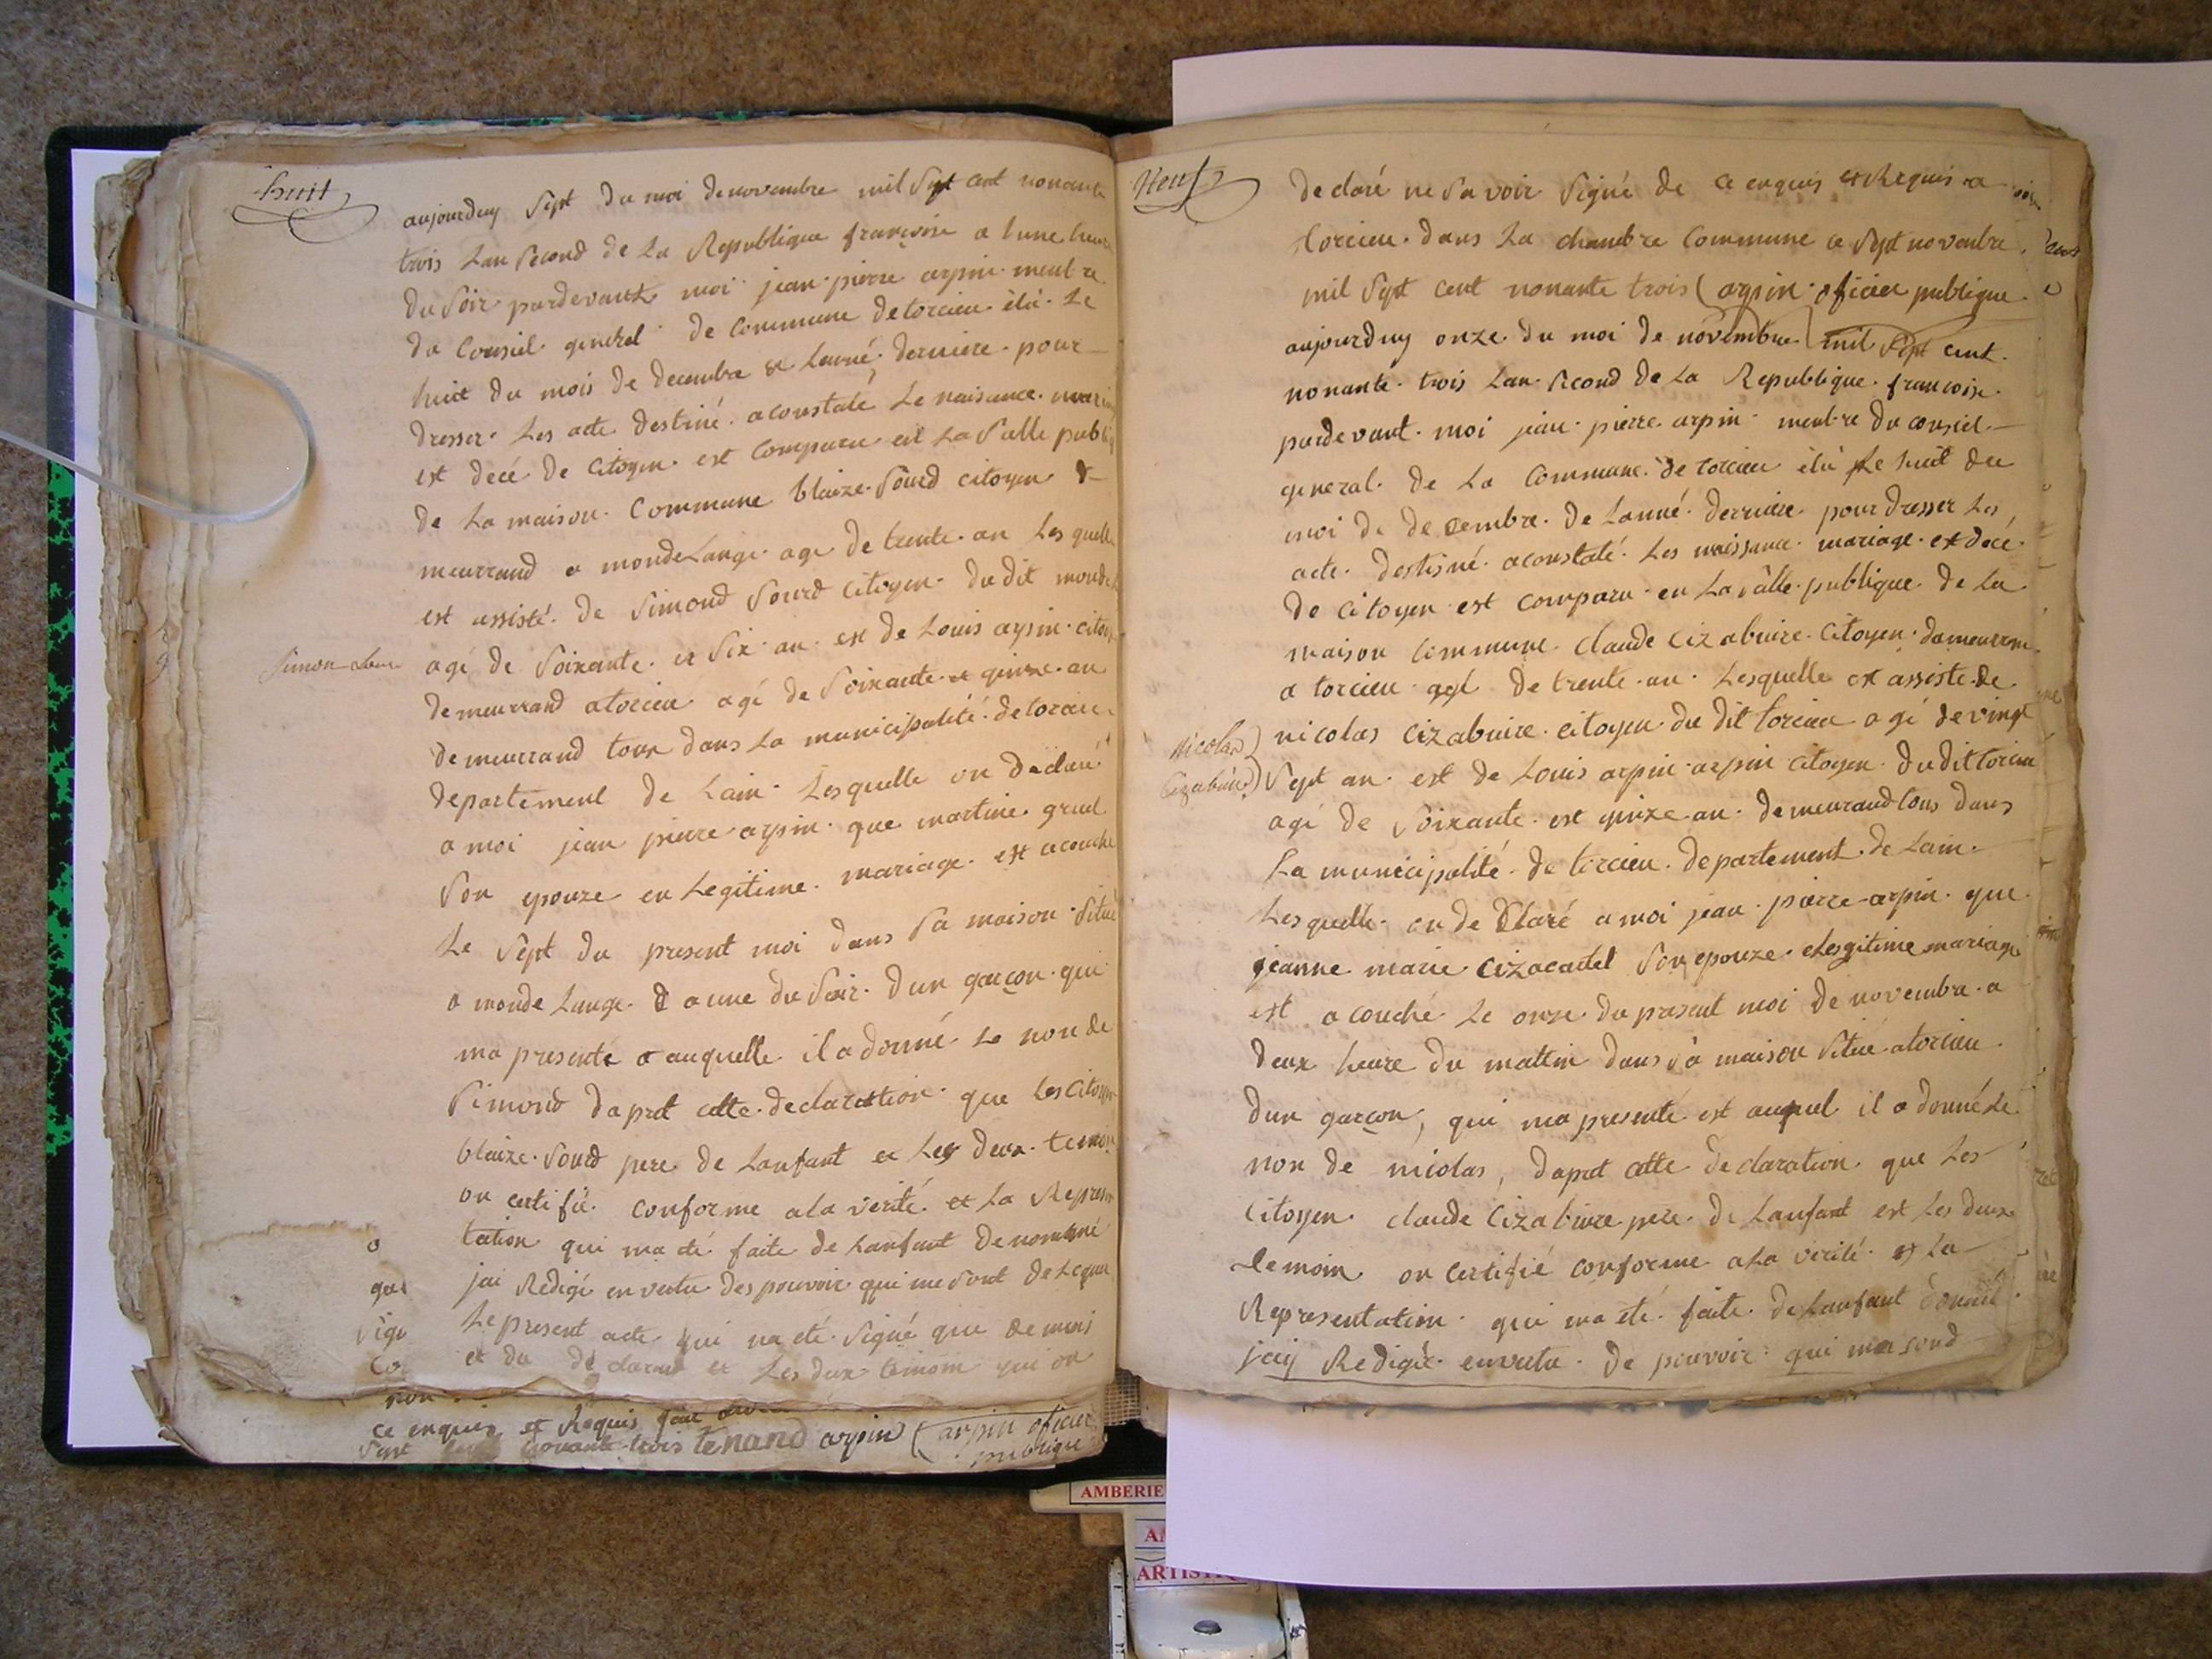 huit
aujourduy Sept du moi denovembre mil Sept cent nonante
trois Lan Second de La Republique françoise a lune heure
du Soir pardevant moi jean pierre arpin menbre
du Consiel general de Commune detorcieu élü Le
huit du mois de decembre et Lanné derniere pour
dresser Les acte destiné aconstaté Le naisance
est decé de Citoyen est Comparu en La Salle
de La maison Commune blaize Sourd citoyen de
meurrand a mondeLange age de trente an Les quelle
est assisté de Simond Sourd Citoyen du dit
Simon
agé de Soixante et Six an est de Louis arpin
demeurrand atorcieu agé de Soixante et quinze an
demeurrand tous dans La municipalité de torcieu
departement de Lain Lesquelle on declaré
a moi jean pierre arpin que martine
Son epouze en Legitime mariage est acouché
Le Sept du present moi dans Sa maison Situé
a monde Lange a une du Soir dun garçon qui
ma presenté auquelle il a donné Le non de
Simond dapret cette declaration que Les Citoyen
blaize Sourd pere de Lanfant et Les deux temoin
on certifié conforme ala verité et La Represen
tation qui ma eté faite de Lanfant denommé
jai Redigé en vertu des pouvoir qui me Sont
Le present acte qui na eté Signé que de moi
et du declarant et Les deux temoin qui on
ce enquis et Requis fait
Sept nonante trois tenand arpin (arpin oficier
publique
Neuf
declaré ne Savoir Signé de ce enquis et Requis a
torcieu dans La chambre Commune ce Sept novembre
mil Sept cent nonante trois (arpin oficier publique
aujourduy onze du moi de novembre mil Sept cent
nonante trois Lan Second de La Republique francoise
pardevant moi jean pierre arpin menbre du consiel
general de La Commune de torcieu élü Le huit du
moi de decembre de Lanné derniere pour dresser Les
acte destisné aconstaté Les naissance mariage et decé
de Citoyen est comparu en La Salle publique de La
maison Commune claude Cizabuire Citoyen
a torcieu agé de trente an Lesquelle est assiste de
Nicolas
Cizabuire
nicolas Cizabuire citoyen du dit torcieu agé de vingt
Sept an est de Louis arpin arpin citoyen du dit torcieu
agé de Soixante est quinze an demeurand tous dans
La municipalité de torcieu departement de Lain
Lesquelle on declaré a moi jean pierre arpin que
jeanne marie Son epouze mariage
est acouché Le onze du present moi de novembre a
deux heure du mattin dans Sa maison Situé atorcieu
dun garçon, qui ma presenté est auquel il a donné Le
non de nicolas, dapret cette declaration que Les
Citoyen claude Cizabuire pere de Lanfant est Les deux
temoin on certifié conforme ala verité et La
Representation qui ma eté faite de Lanfant
jay Redigée envertu de pouvoir qui me sond